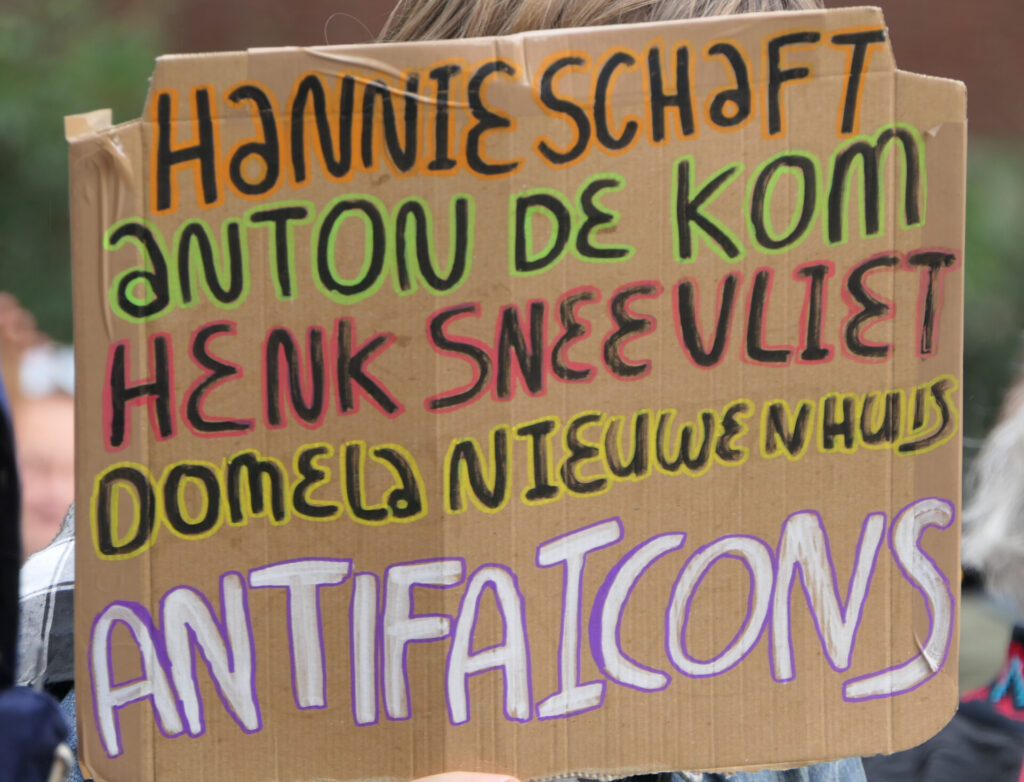 HANNIE SCHAFT
ANTON DE KOM
HENK SNEEVLIET
DOMELA NIEUWENHUIS
ANTIFAICONS